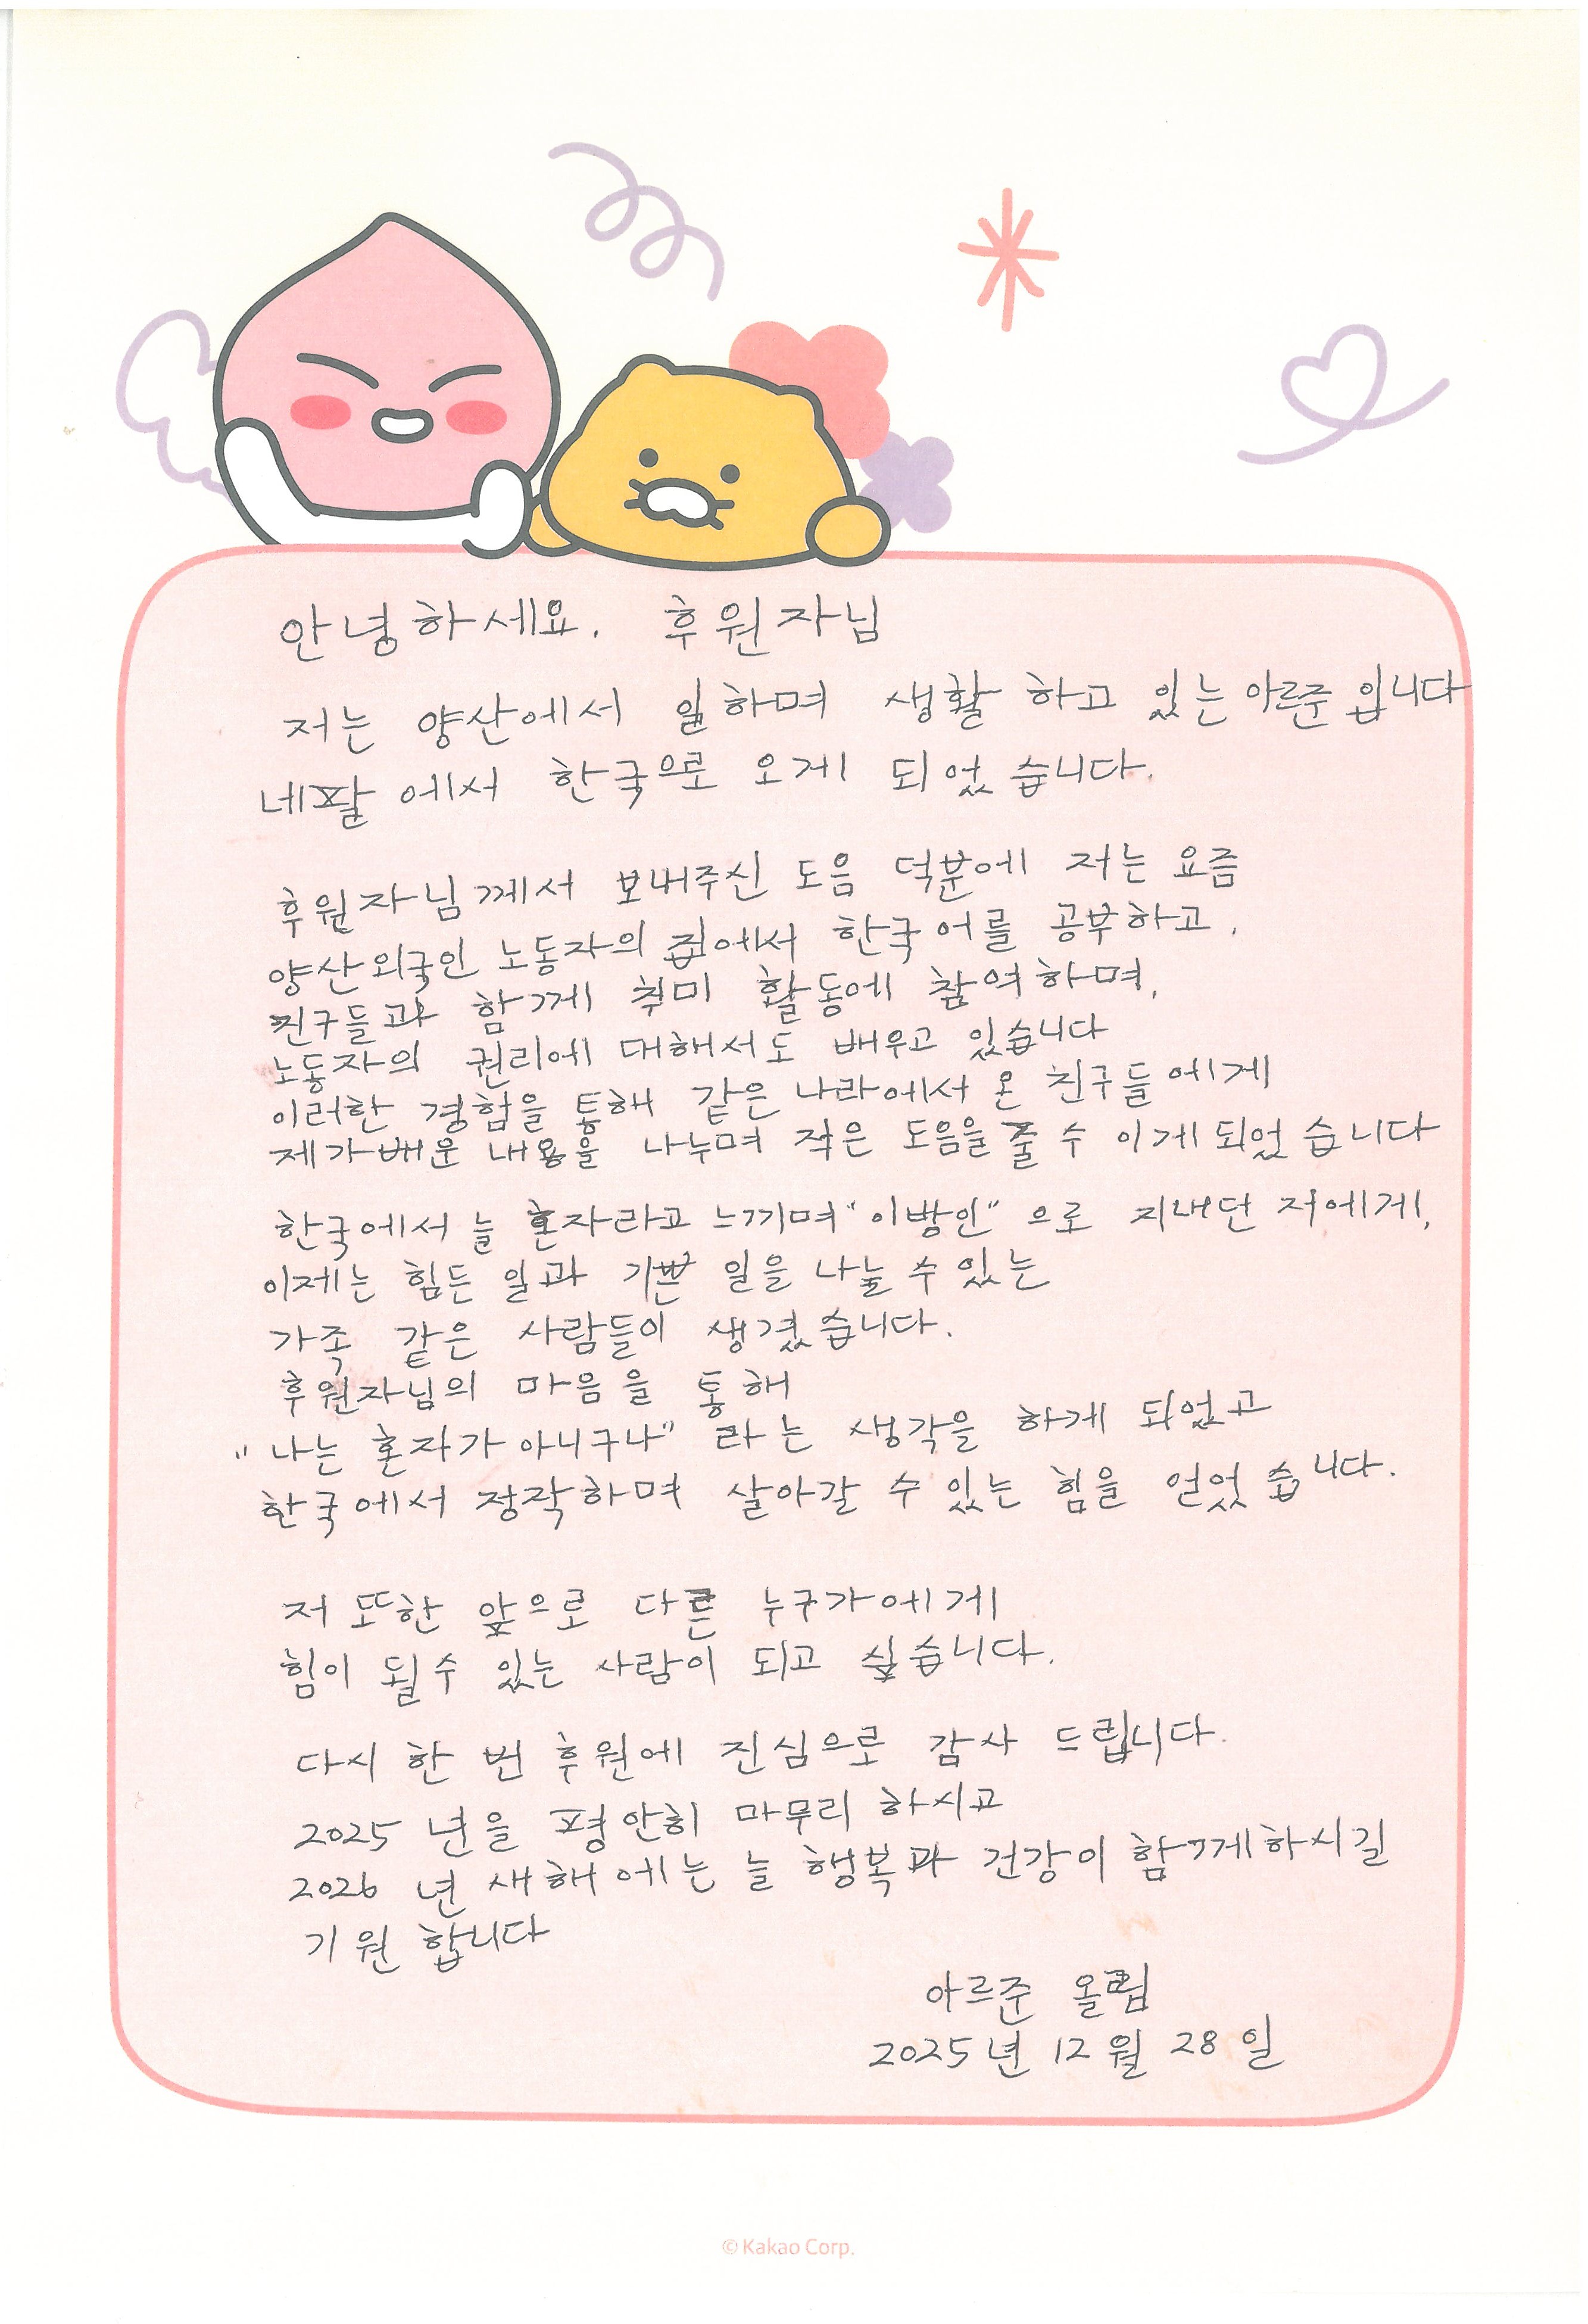 안녕하세요. 후원자님
저는 양산에서 일하며 생활 하고 있는 아르준 입니다
네팔 에서 한국으로 오게 되었 습니다.
후원자님께서 보내주신 도음 덕분에 저는 요즘
양산외국인 노동자의 집에서 한국어를 공부하고,
친구들과 함께 취미 활동에 참여하며,
노동자의 권리에 대해서도 배우고 있습니다
이러한 경험을 통해 같은 나라에서 온 친구들에게
제가배운 내용을 나누며 적은 도음을 줄 수 이게 되었 습니다
한국에서 늘 혼자라고 느끼며 "이방인" 으로 지내던 저에게,
이제는 힘든 일과 기쁜 일을 나눌 수 있는
가족 같은 사람들이 생겼습니다.
후원자님의 마음을 통해
"나는 혼자가 아니구나" 라는 생각을 하게 되었고
한국에서 정작하며 살아갈 수 있는 힘을 얻었 습니다.
저 또한 앞으로 다른 누구가에게
힘이 될수 있는 사람이 되고 싶습니다.
다시 한 번 후원에 진심으로 감사 드립니다.
2025 년을 평안히 마무리 하시고
2026 년 새해에는 늘 행복과 건강이 함께하시길
기원 합니다
아르준 올림
2025년 12월 28일
© Kakao Corp.